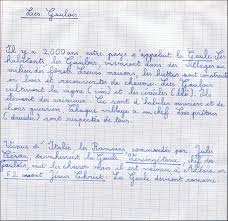 Les Gaulois
Il y a 2000 ans notre pays s'appelait la Gaule. Les
habitants les Gaulois, vivaient dans des villages au
milieu des forêts. Leurs maisons, les huttes sont construites
en bois et recouvertes de chaume. Les Gaulois
cultivent la vigne (vin) et les céréales (blé). Ils
élèvent des animaux. Ce sont d'habiles ouvriers et de
bons guerriers. Chaque village a un chef. Les prêtres
(druides) sont respectés de tous.
Venus d'Italie les Romains commandés par Jules
César, envahissent la Gaule. Vercingétorix, chef des
Gaulois, veut les chasser mais il est vaincu à Alésia en
52 avant Jésus Christ. La Gaule devient romaine.